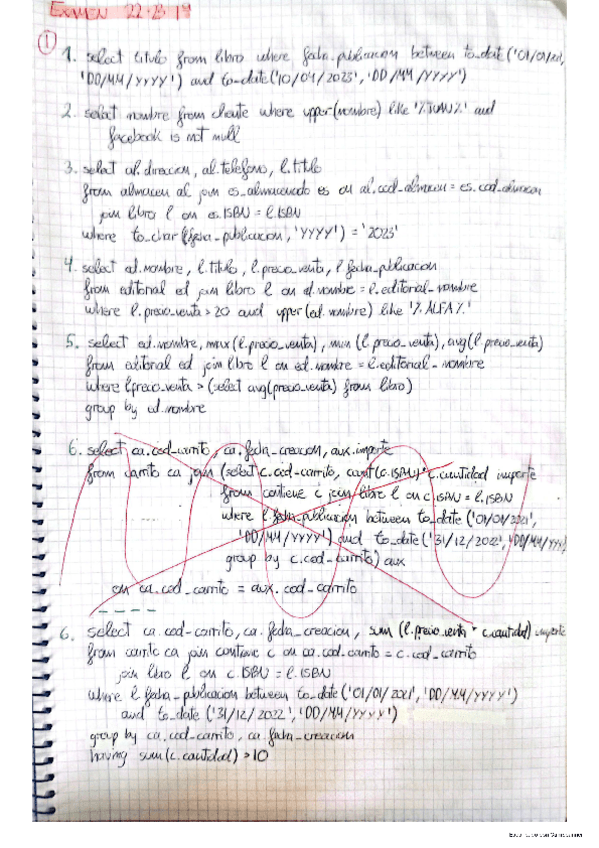 EXAMEN 22-23 1º
①
1. select titulo from libro where fecha_publicacion between to_date('01/01/
'DD/MM/YYYY') and to_date('10/04/2023', 'DD/MM/YYYY')
2. select nombre from cliente where upper(nombre) like '%JUAN%' and
facebook is not null
3. select al.direccion, al.telefono, l.titulo
from almacen al join es_almacenado es on al.cod_almacen = es.cod_almacen
join libro l on es.ISBN = l.ISBN
where to_char(l.fecha_publicacion, 'YYYY') = '2023'
4. select ed.nombre, l.titulo, l.precio_venta, l.fecha_publicacion
from editorial ed join libro l on ed.nombre = l.editorial_nombre
where l.precio_venta > 20 and upper(ed.nombre) like '%ALFA%'
5. select ed.nombre, max(l.precio_venta), min(l.precio_venta), avg(l.precio_venta)
from editorial ed join libro l on ed.nombre = l.editorial_nombre
where l.precio_venta > (select avg(precio_venta) from libro)
group by ed.nombre
6. select ca.cod_carrito, ca.fecha_creacion, aux.importe
from carrito ca join (select c.cod_carrito, count(c.ISBN)*c.cantidad importe
from contiene c join libro l on c.ISBN = l.ISBN
where l.fecha_publicacion between to_date('01/01/2021',
'DD/MM/YYYY') and to_date('31/12/2022', 'DD/MM/YYYY')
group by c.cod_carrito) aux
on ca.cod_carrito = aux.cod_carrito
6. select ca.cod_carrito, ca.fecha_creacion, sum(l.precio_venta * c.cantidad) importe
from carrito ca join contiene c on ca.cod_carrito = c.cod_carrito
join libro l on c.ISBN = l.ISBN
where l.fecha_publicacion between to_date('01/01/2021', 'DD/MM/YYYY')
and to_date('31/12/2022', 'DD/MM/YYYY')
group by ca.cod_carrito, ca.fecha_creacion
having sum(c.cantidad) > 10